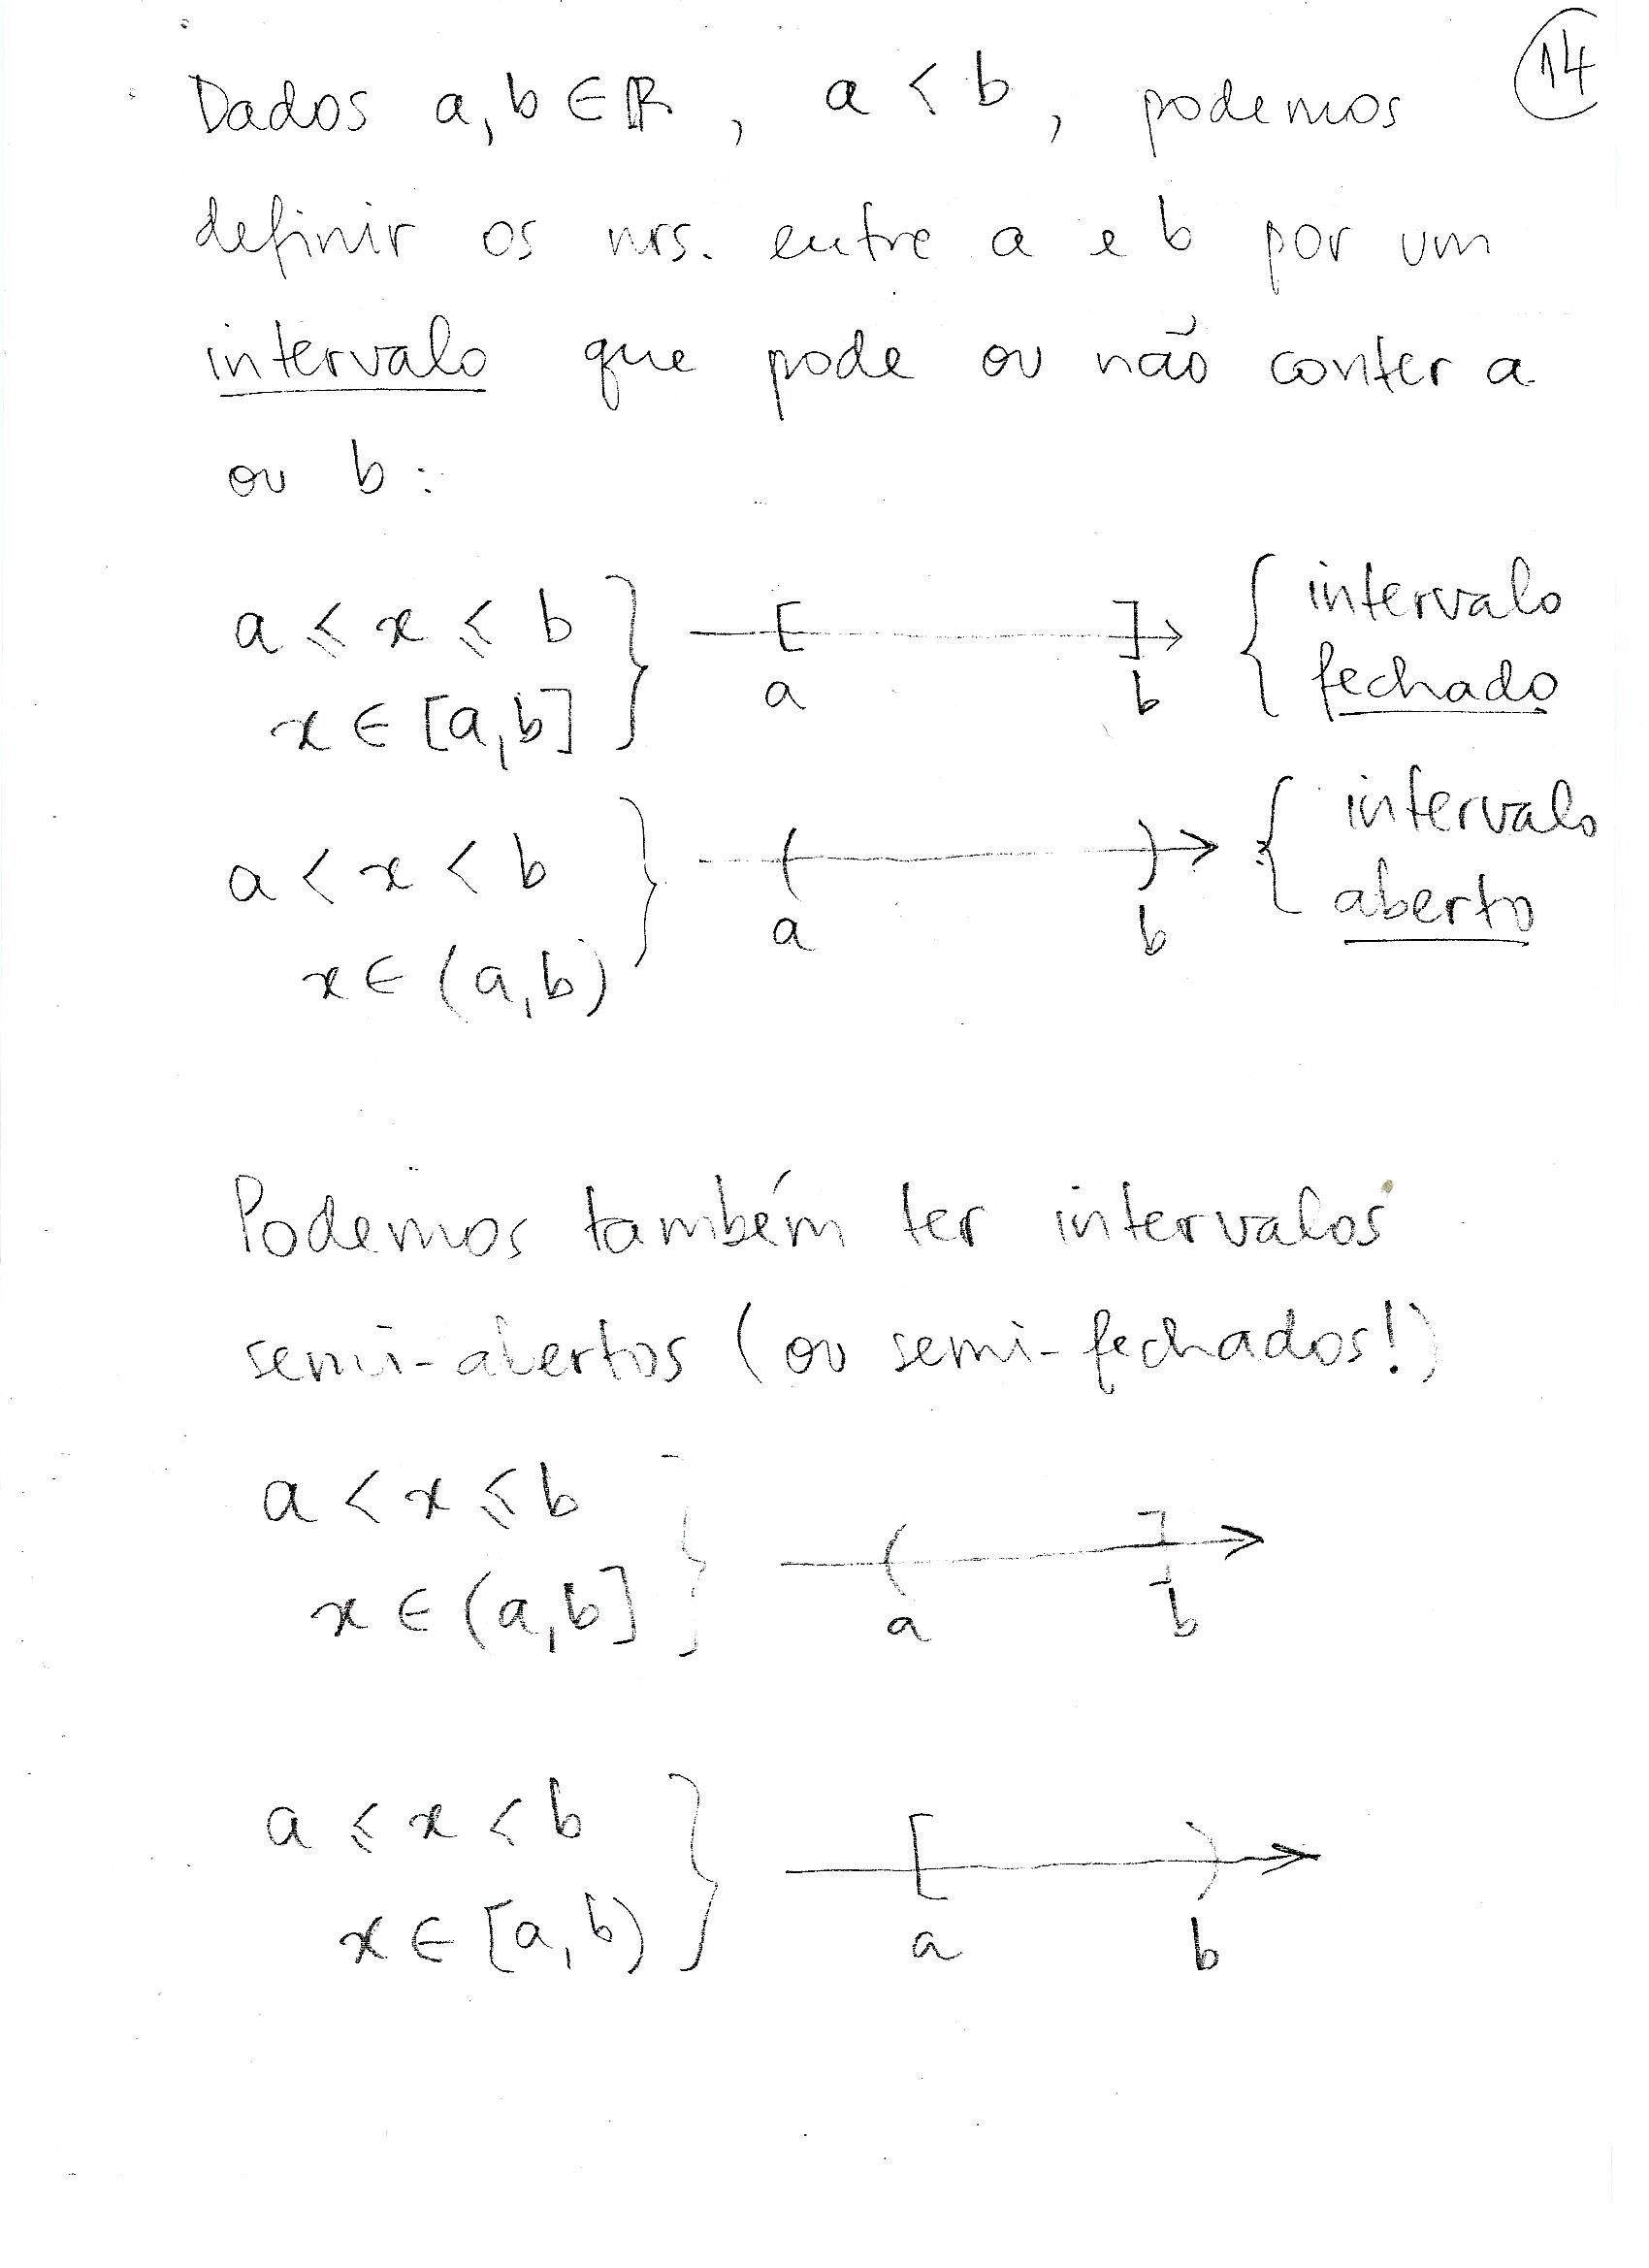 14
Dados a, b ∈ ℝ, a < b, podemos
definir os nrs. entre a e b por um
intervalo que pode ou não conter a
ou b:
a ⩽ x ⩽ b } [ ] { intervalo
x ∈ [a, b] a b fechado
a < x < b } ( ) { intervalo
x ∈ (a, b) a b aberto
Podemos também ter intervalos
semi-abertos (ou semi-fechados!)
a < x ⩽ b } ( ]
x ∈ (a, b] a b
a ⩽ x < b } [ )
x ∈ [a, b) a b